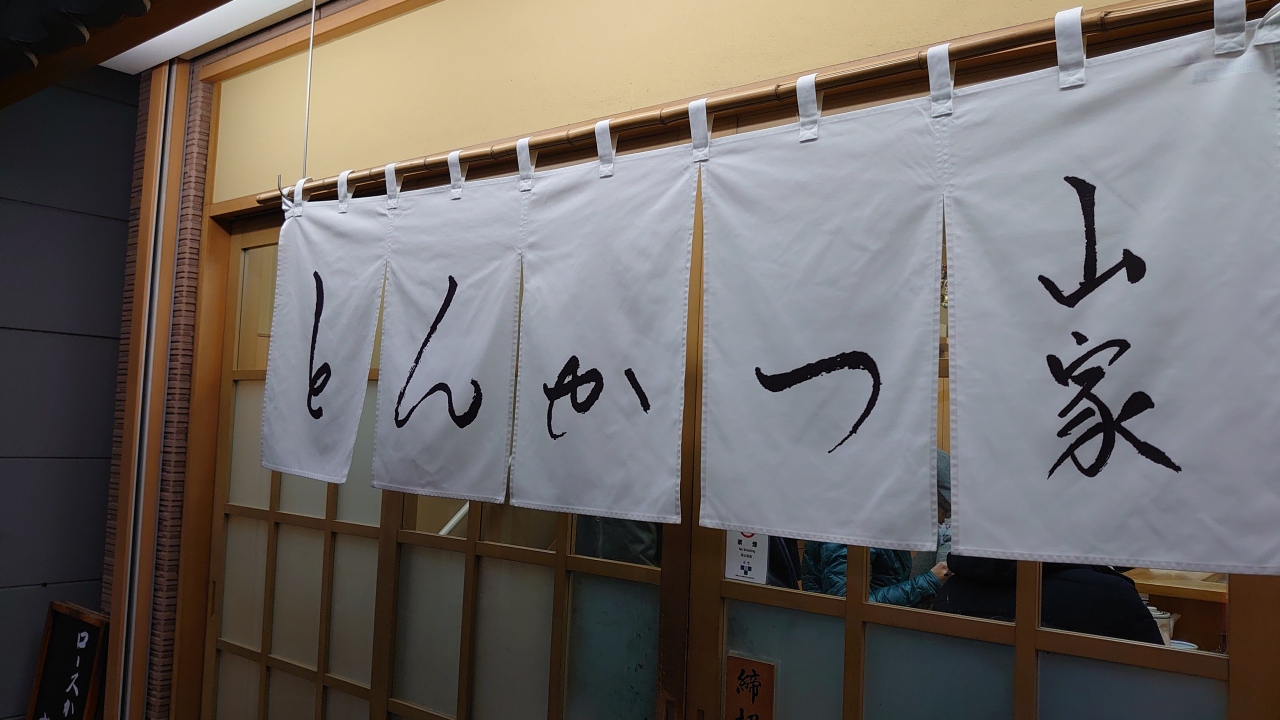 とんかつ
山家
禁煙
No Smoking
ロースか
締